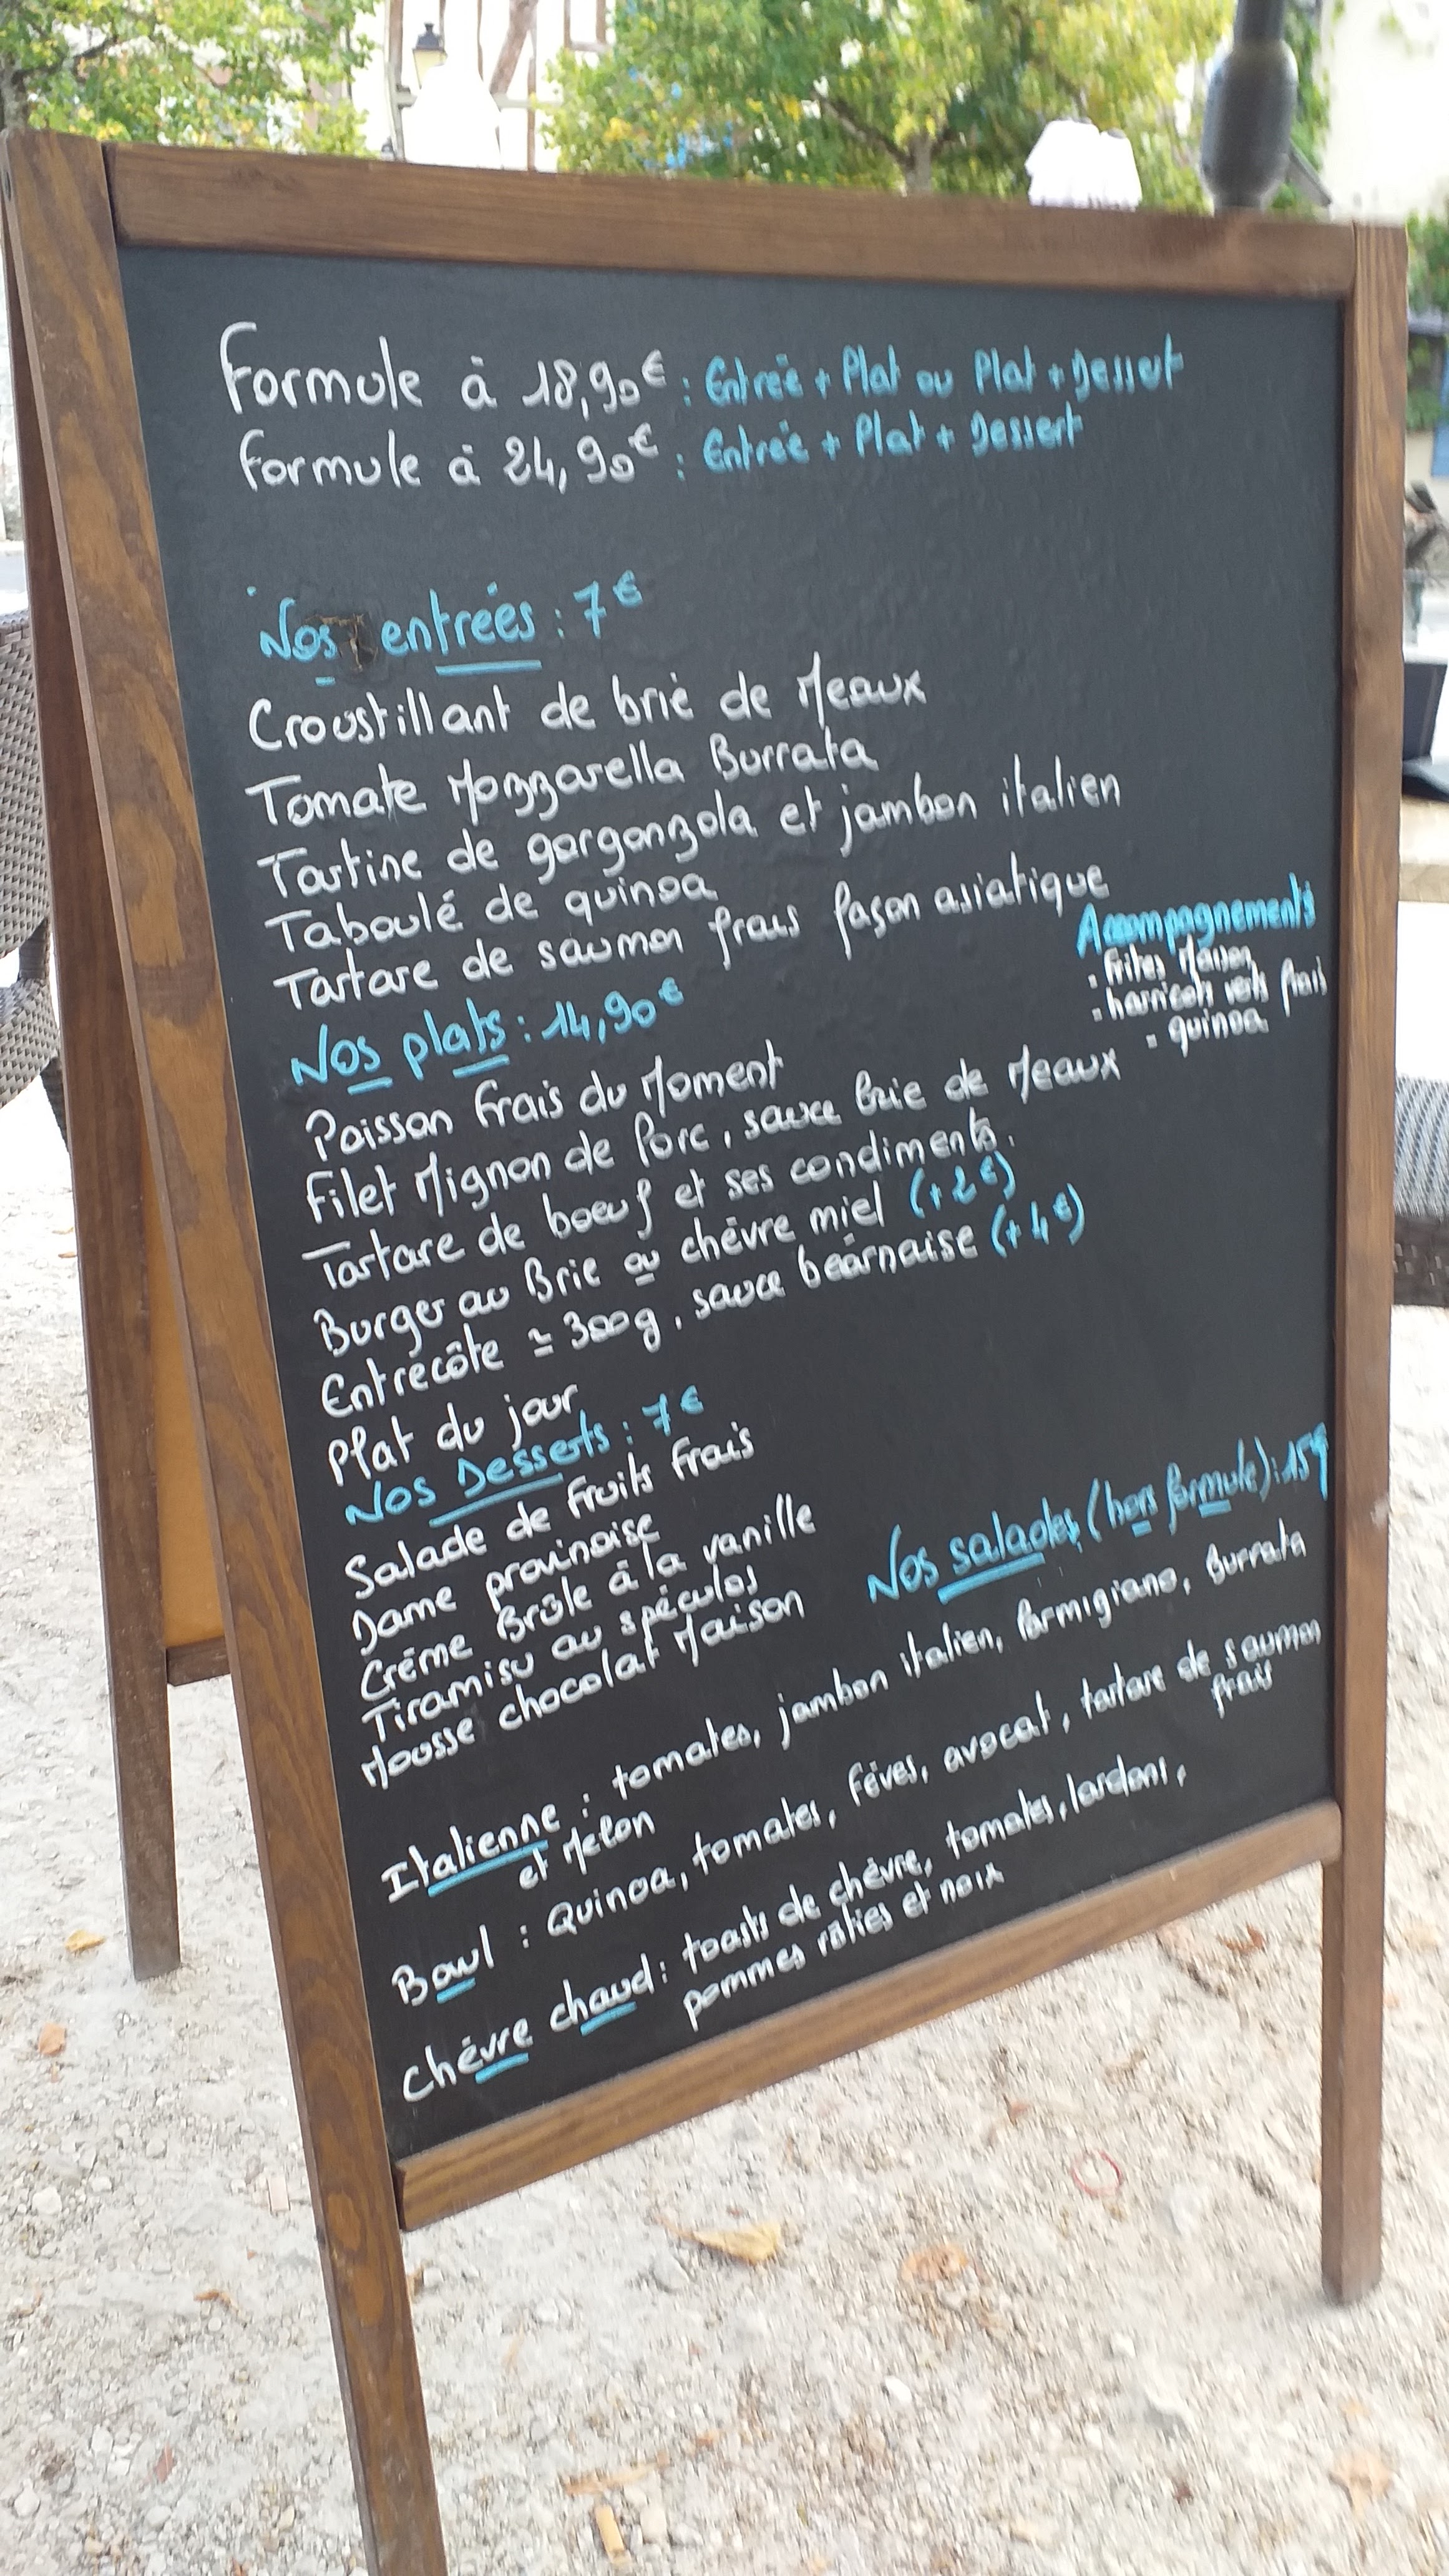 Formule à 18,90€ : Entrée + Plat ou Plat + Dessert
Formule à 24,90€ : Entrée + Plat + Dessert
Nos entrées : 7€
Croustillant de brie de Meaux
Tomate Mozzarella Burrata
Tartine de gorgonzola et jambon italien
Taboulé de quinoa
Tartare de saumon frais façon asiatique
Accompagnements
- frites Maison
- harricots verts frais
- quinoa
Nos plats : 14,90€
Poisson frais du Moment
Filet Mignon de Porc, sauce brie de Meaux
Tartare de boeuf et ses condiments.
Burger au Brie ou chèvre miel (+2€)
Entrecôte ≃ 300g, sauce béarnaise (+4€)
Plat du jour
Nos Desserts : 7€
Salade de fruits frais
Dame provinoise
Crème Brûle à la vanille
Tiramisu au spéculos
Mousse chocolat Maison
Nos salades (hors formule) : 15€
Italienne : tomates, jambon italien, Parmigiano, Burrata
et Melon
Bowl : Quinoa, tomates, fèves, avocat, tartare de saumon
frais
Chèvre chaud : toasts de chèvre, tomates, lardons,
pommes râties et noix